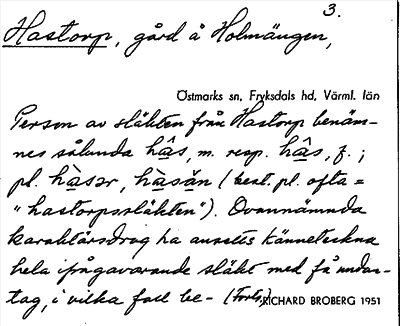 3.
Hastorp, gård å Holmängen,
Östmarks sn, Fryksdals hd, Värml. län
Person av släkten från Hastorp benäm-
nes sålunda hâs, m. resp. hâs, f.;
pl. hàsər, hàsän (best. pl. ofta =
"hastorpssläkten"). Ovannämnda
karaktärsdrag ha ansetts känneteckna
hela ifrågavarande släkt med få undan-
tag, i vilka fall be- (Forts.)
RICHARD BROBERG 1951